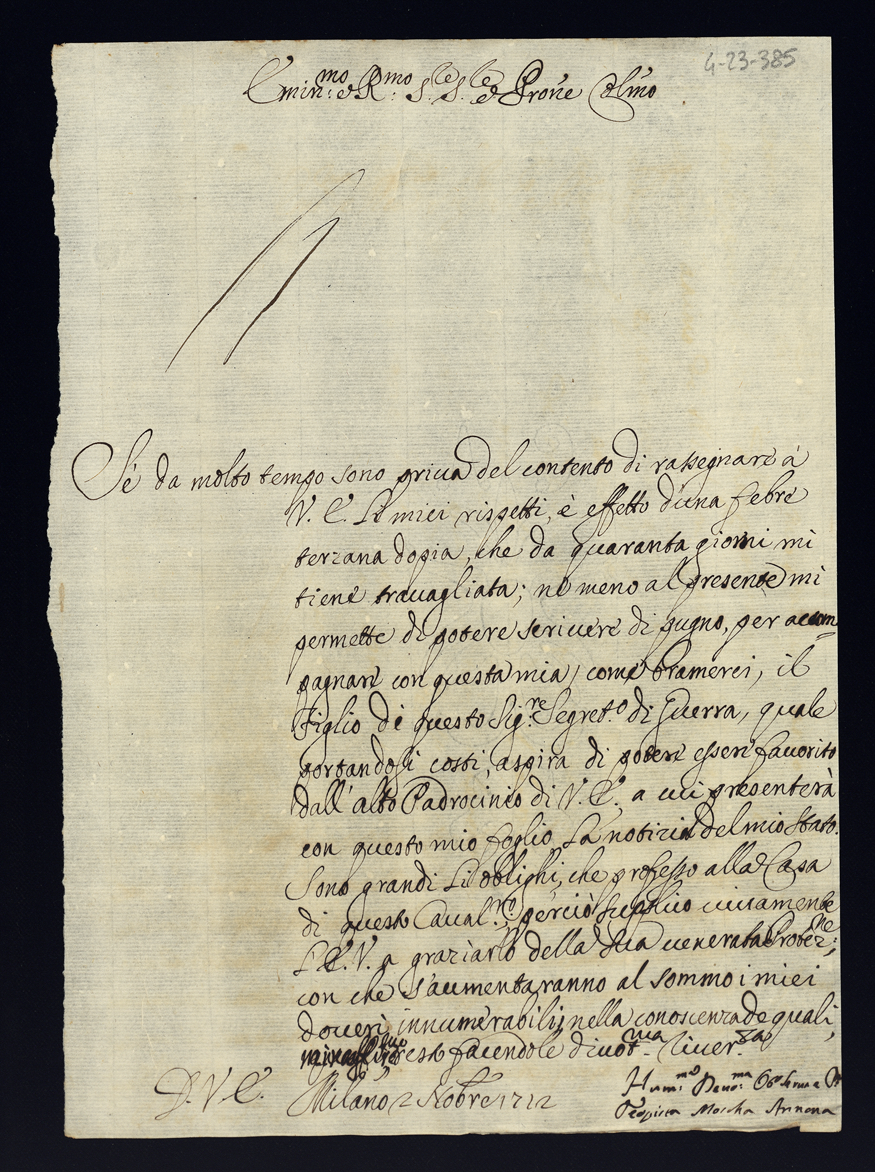 4-23-385
Emin.mo e R.mo S.re S.re e Prone Colmo
Sé da molto tempo sono priva del contento di rassegnare à
V. E. li miei rispetti, è effetto d'una febre
terzana dopia, che da quaranta giorni mi
tiene travagliata; ne meno al presente mi
permette di potere scrivere di pugno, per accom=
pagnare con questa mia, come bramerei, il
Figlio dè questo Sig.re Segret.o di Guerra, quale
portandosi costì, aspira di potere essere favorito
dall'alto Padrocinio di V. E. a cui presenterà
con questo mio foglio la notizia del mio stato.
Sono grandi li oblighi, che professo alla Casa
di questo Caval.ro, perciò supplico vivamente
l'E. V. a graziarlo della sua venerata Protez.ne;
con che s'aumentaranno al sommo i miei
doveri innumerabili; nella conoscenza de quali,
resto facendole divot.ma River.za
D. V. E. Milano 2 Nobre 1712
Hum.ma Devo.ma Ob Serva
Teopista Moscha Annona